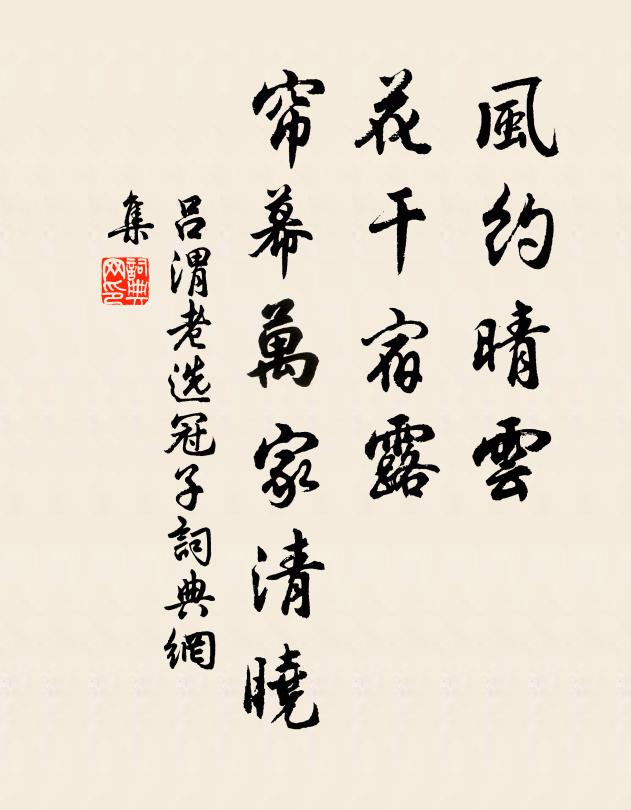 風約晴雲
花干宿露
帘幕萬家清曉
吕渭老选冠子詞典網
集
詞典
网印